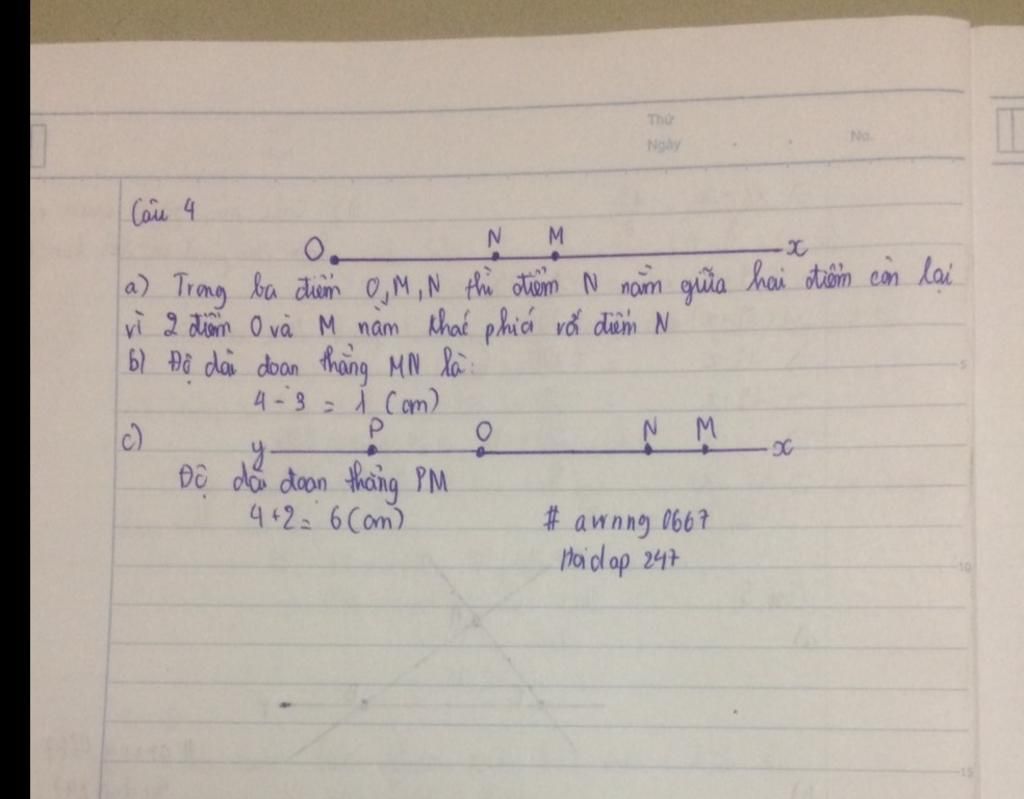 Thứ
Ngày . . No.
Câu 4
O N M x
a) Trong ba điểm O, M, N thì điểm N nằm giữa hai điểm còn lại
vì 2 điểm O và M nằm khác phía với điểm N
b) Độ dài đoạn thẳng MN là:
4 - 3 = 1 (cm)
c) y P O N M x
Độ dài đoạn thẳng PM
4 + 2 = 6 (cm)
# awnng 0667
Hoidap 247
5
10
15